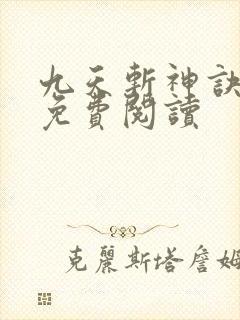 九天斬神訣
免費閱讀
克麗斯塔詹姆